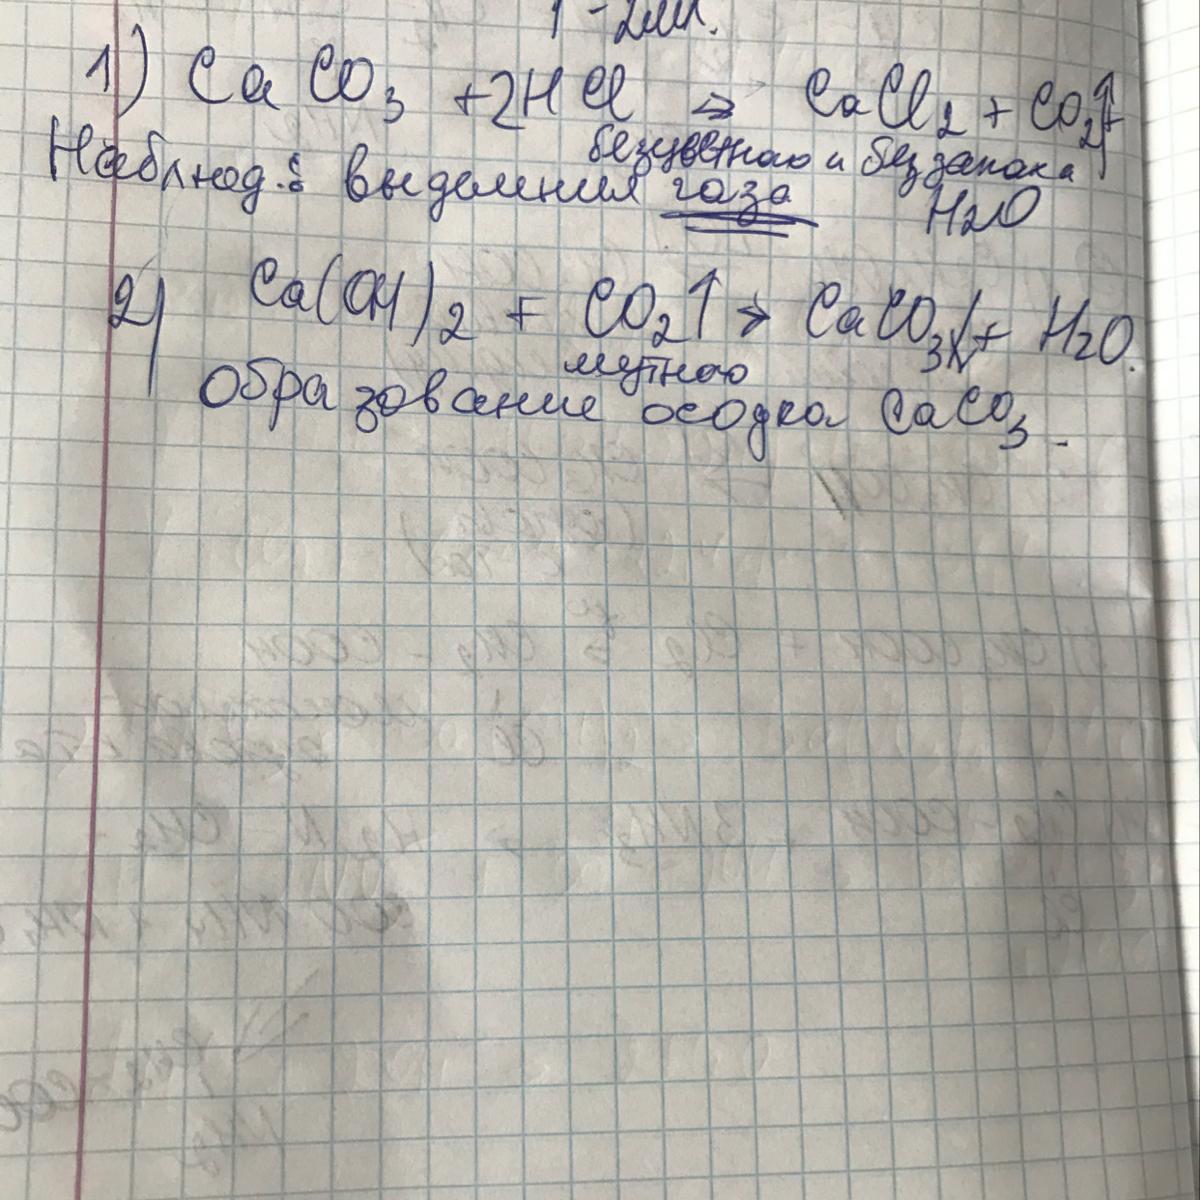 1 - 2мл.
1) CaCO3 + 2HCl → CaCl2 + CO2↑ +
безцветного и без запаха
Наблюд.: выделения газа H2O
2) Ca(OH)2 + CO2↑ → CaCO3↓ + H2O.
мутного
Образование осодка CaCO3.